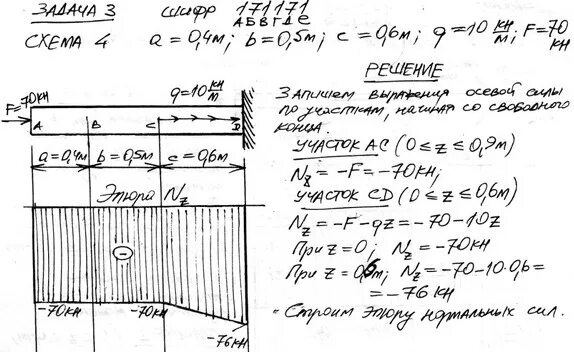 ЗАДАЧА 3 ШИФР 171171
АБВГДЕ
СХЕМА 4 a = 0,4м; b = 0,5м; c = 0,6м; q = 10 кН/м; F = 70 кН
РЕШЕНИЕ
Запишем выражения осевой силы
по участкам, начиная со свободного
конца.
УЧАСТОК АС (0 ≤ z ≤ 0,9м)
Nz = -F = -70кН;
УЧАСТОК CD (0 ≤ z ≤ 0,6м)
Nz = -F - qz = -70 - 10z
При z = 0; Nz = -70кН
При z = 0,6м; Nz = -70 - 10·0,6 =
= -76 кН
Строим эпюру нормальных сил.
F=70кН
q=10 кН/м
A B C D
a = 0,4м b = 0,5м c = 0,6м
Эпюра Nz
-
-70кН -70кН
-76кН